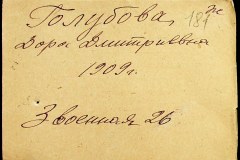 Голубова,
187
Дора Дмитриевна
1909 г.
3 военная 26